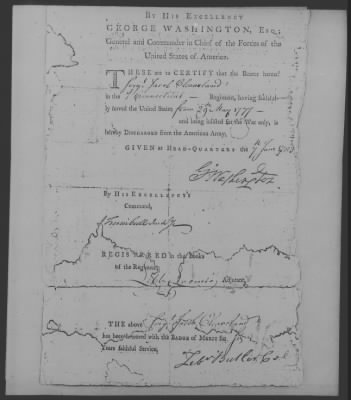 BY HIS EXCELLENCY
GEORGE WASHINGTON, ESQ;
General and Commander in Chief of the Forces of the
United States of America.
THESE are to CERTIFY that the Bearer hereof
Serjt Jacob Cleaveland
in the Connecticut Regiment, having faithful-
ly served the United States from 29th May 1777
and being inlisted for the War only, is
hereby DISCHARGED from the American Army.
GIVEN at HEAD-QUARTERS the June
Go Washington
By HIS EXCELLENCY'S
Command,
J Trumbull Jun
REGISTERED in the Books
of the Regiment,
Adjutant,
THE above Serjt Jacob Cleaveland
has been honored with the BADGE of MERIT for
Years faithful Service.
Zebn Butler, Col